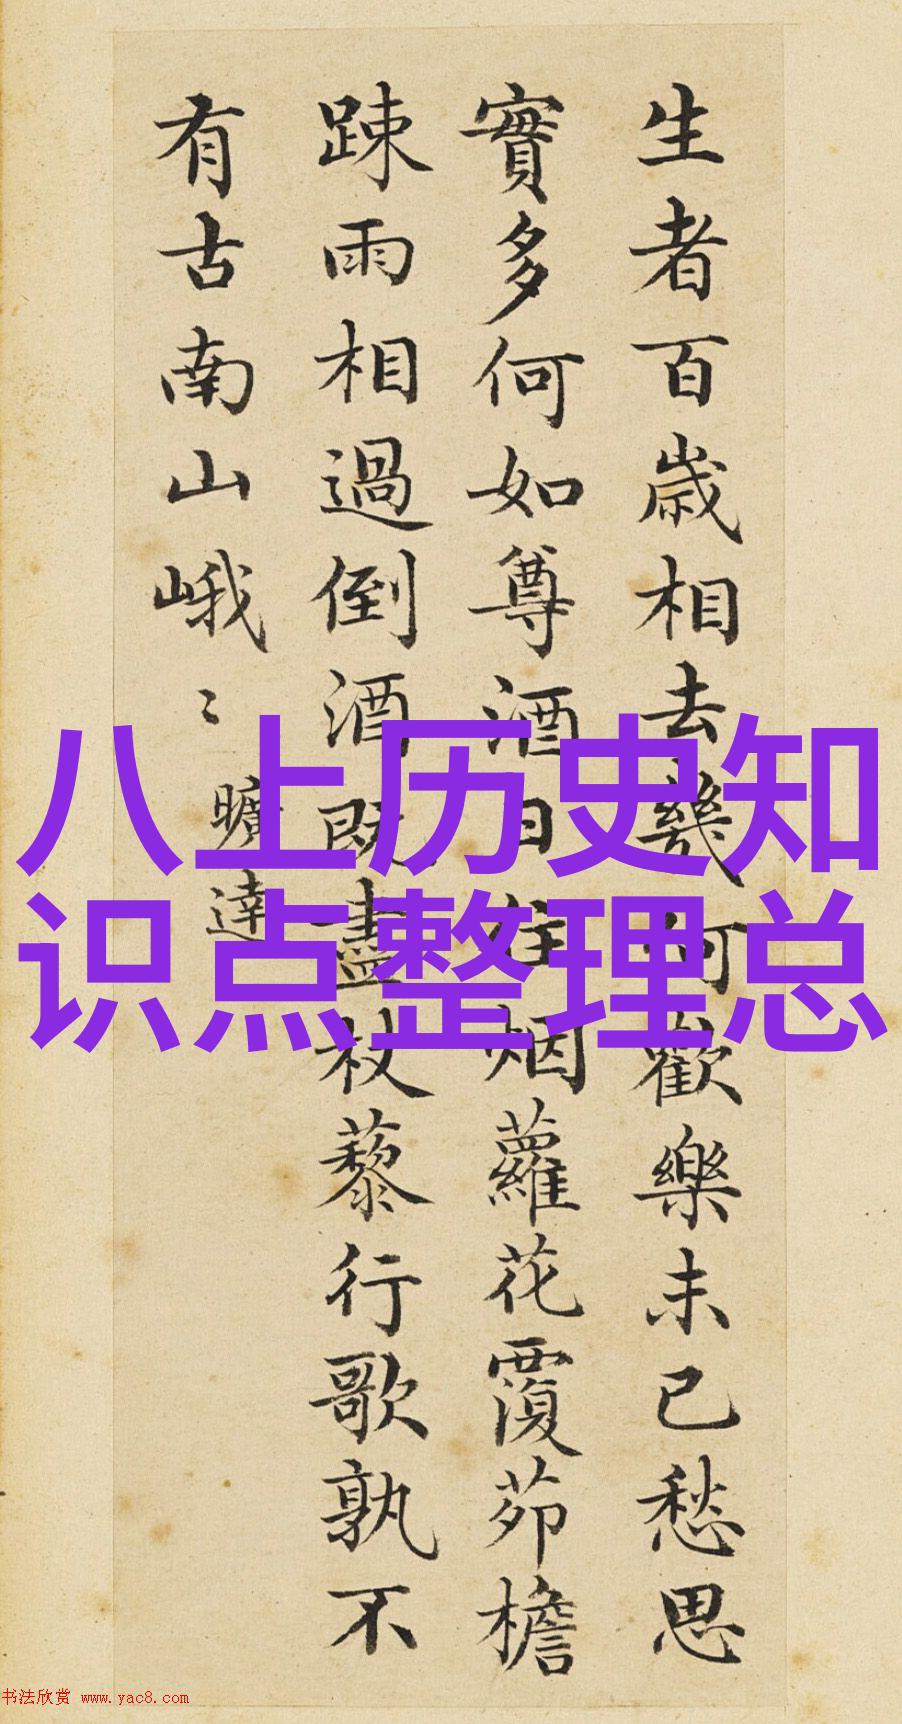 生者百歲相去幾何歡樂未已愁思
實多何如尊酒日往烟蘿花覆茆檐
踈雨相過倒酒既盡杖藜行歌孰不
有古南山峨〻
曠達
八上历史知
识点整理总
书法欣赏 www.yac8.com